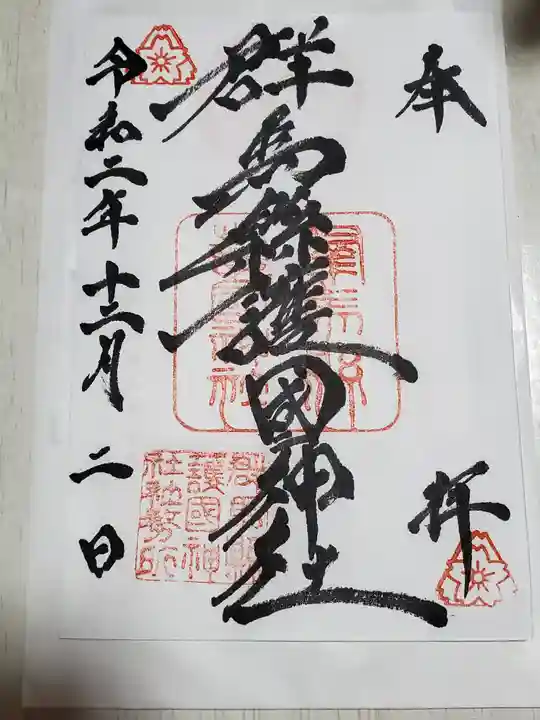 奉拝
群馬縣護国神社
令和二年十二月二日
群馬縣
護國神
社社務所